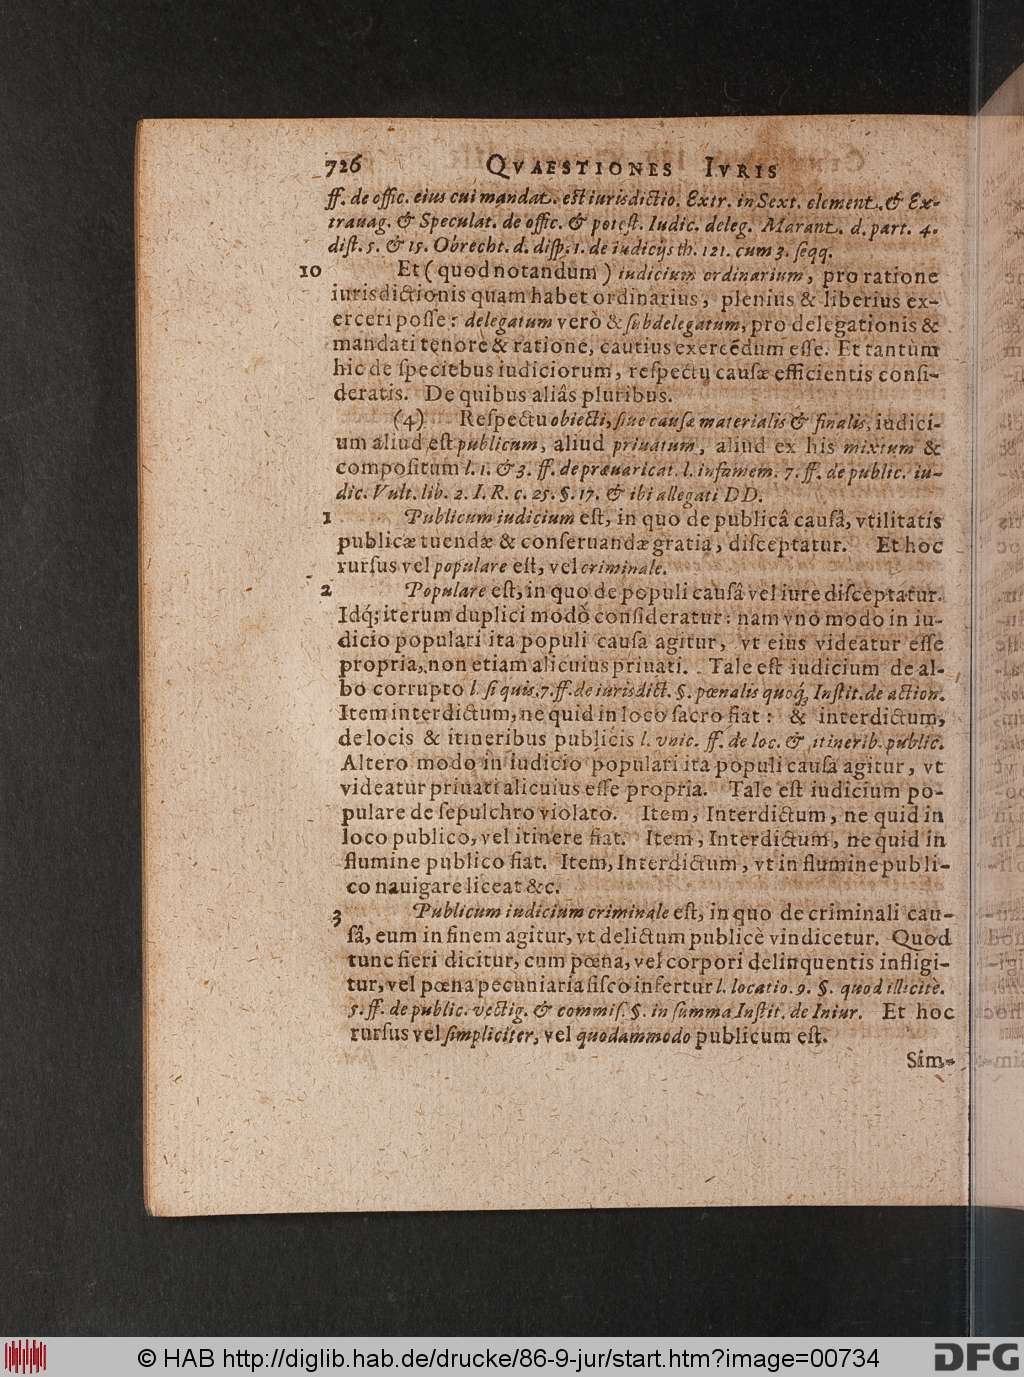 726 QVAESTIONES IVRIS
ff. de offic. eius cui mandat. est iurisdictio. Extr. in Sext. element. & Ex-
trauag. & Speculat. de offic. & potest. Iudic. deleg. Marant. d. part. 4.
dist. 5. & 15. Obrecht. d. disp. 1. de iudicijs th. 121. cum 3. seqq.
10 Et (quod notandum) iudicium ordinarium, pro ratione
iurisdictionis quam habet ordinarius, plenius & liberius ex-
erceri posse: delegatum verò & subdelegatum, pro delegationis &
mandati tenore & ratione, cautius exercēdum esse. Et tantùm
hic de speciebus iudiciorum, respectu causæ efficientis consi-
deratis. De quibus aliâs pluribus.
(4) Respectu obiecti, siue causæ materialis & finalis, iudici-
um aliud est publicum, aliud priuatum, aliud ex his mixtum &
compositum l. 1. & 3. ff. de præuaricat. l. infamem. 7. ff. de public. iu-
dic. Vult. lib. 2. I. R. c. 25. §. 17. & ibi allegati DD.
1 Publicum iudicium est, in quo de publicâ causâ, vtilitatis
publicæ tuendæ & conseruandæ gratia, disceptatur. Et hoc
rursus vel populare est, vel criminale.
2 Populare est, in quo de populi causâ vel iure disceptatur.
Idq́; iterum duplici modo consideratur: nam vno modo in iu-
dicio populari ita populi causa agitur, vt eius videatur esse
propria, non etiam alicuius priuati. Tale est iudicium de al-
bo corrupto l. si quis. 7. ff. de iurisdict. §. pœnalis quoq́; Instit. de action.
Item interdictum, ne quid in loco sacro fiat: & interdictum,
de locis & itineribus publicis l. vnic. ff. de loc. & itinerib. public.
Altero modo in iudicio populari ita populi causa agitur, vt
videatur priuati alicuius esse propria. Tale est iudicium po-
pulare de sepulchro violato. Item, Interdictum, ne quid in
loco publico, vel itinere fiat. Item, Interdictum, ne quid in
flumine publico fiat. Item, Interdictum, vt in flumine publi-
co nauigare liceat &c.
3 Publicum iudicium criminale est, in quo de criminali cau-
sâ, eum in finem agitur, vt delictum publicè vindicetur. Quod
tunc fieri dicitur, cum pœna, vel corpori delinquentis infligi-
tur, vel pœna pecuniaria fisco infertur l. locatio. 9. §. quod illicite.
5. ff. de public. vectig. & commis. §. in summa Instit. de Iniur. Et hoc
rursus vel simpliciter, vel quodammodo publicum est.
Sim-
© HAB http://diglib.hab.de/drucke/86-9-jur/start.htm?image=00734
DFG